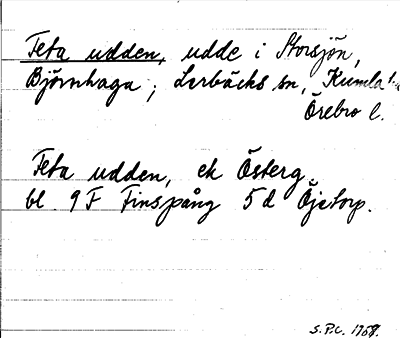 Feta udden, udde i Storsjön,
Björnhaga; Lerbäcks sn, Kumla
Örebro l.
Feta udden, ek Österg.
bl. 9F Finspång 5d Öjetorp.
S.P.C. 1968.